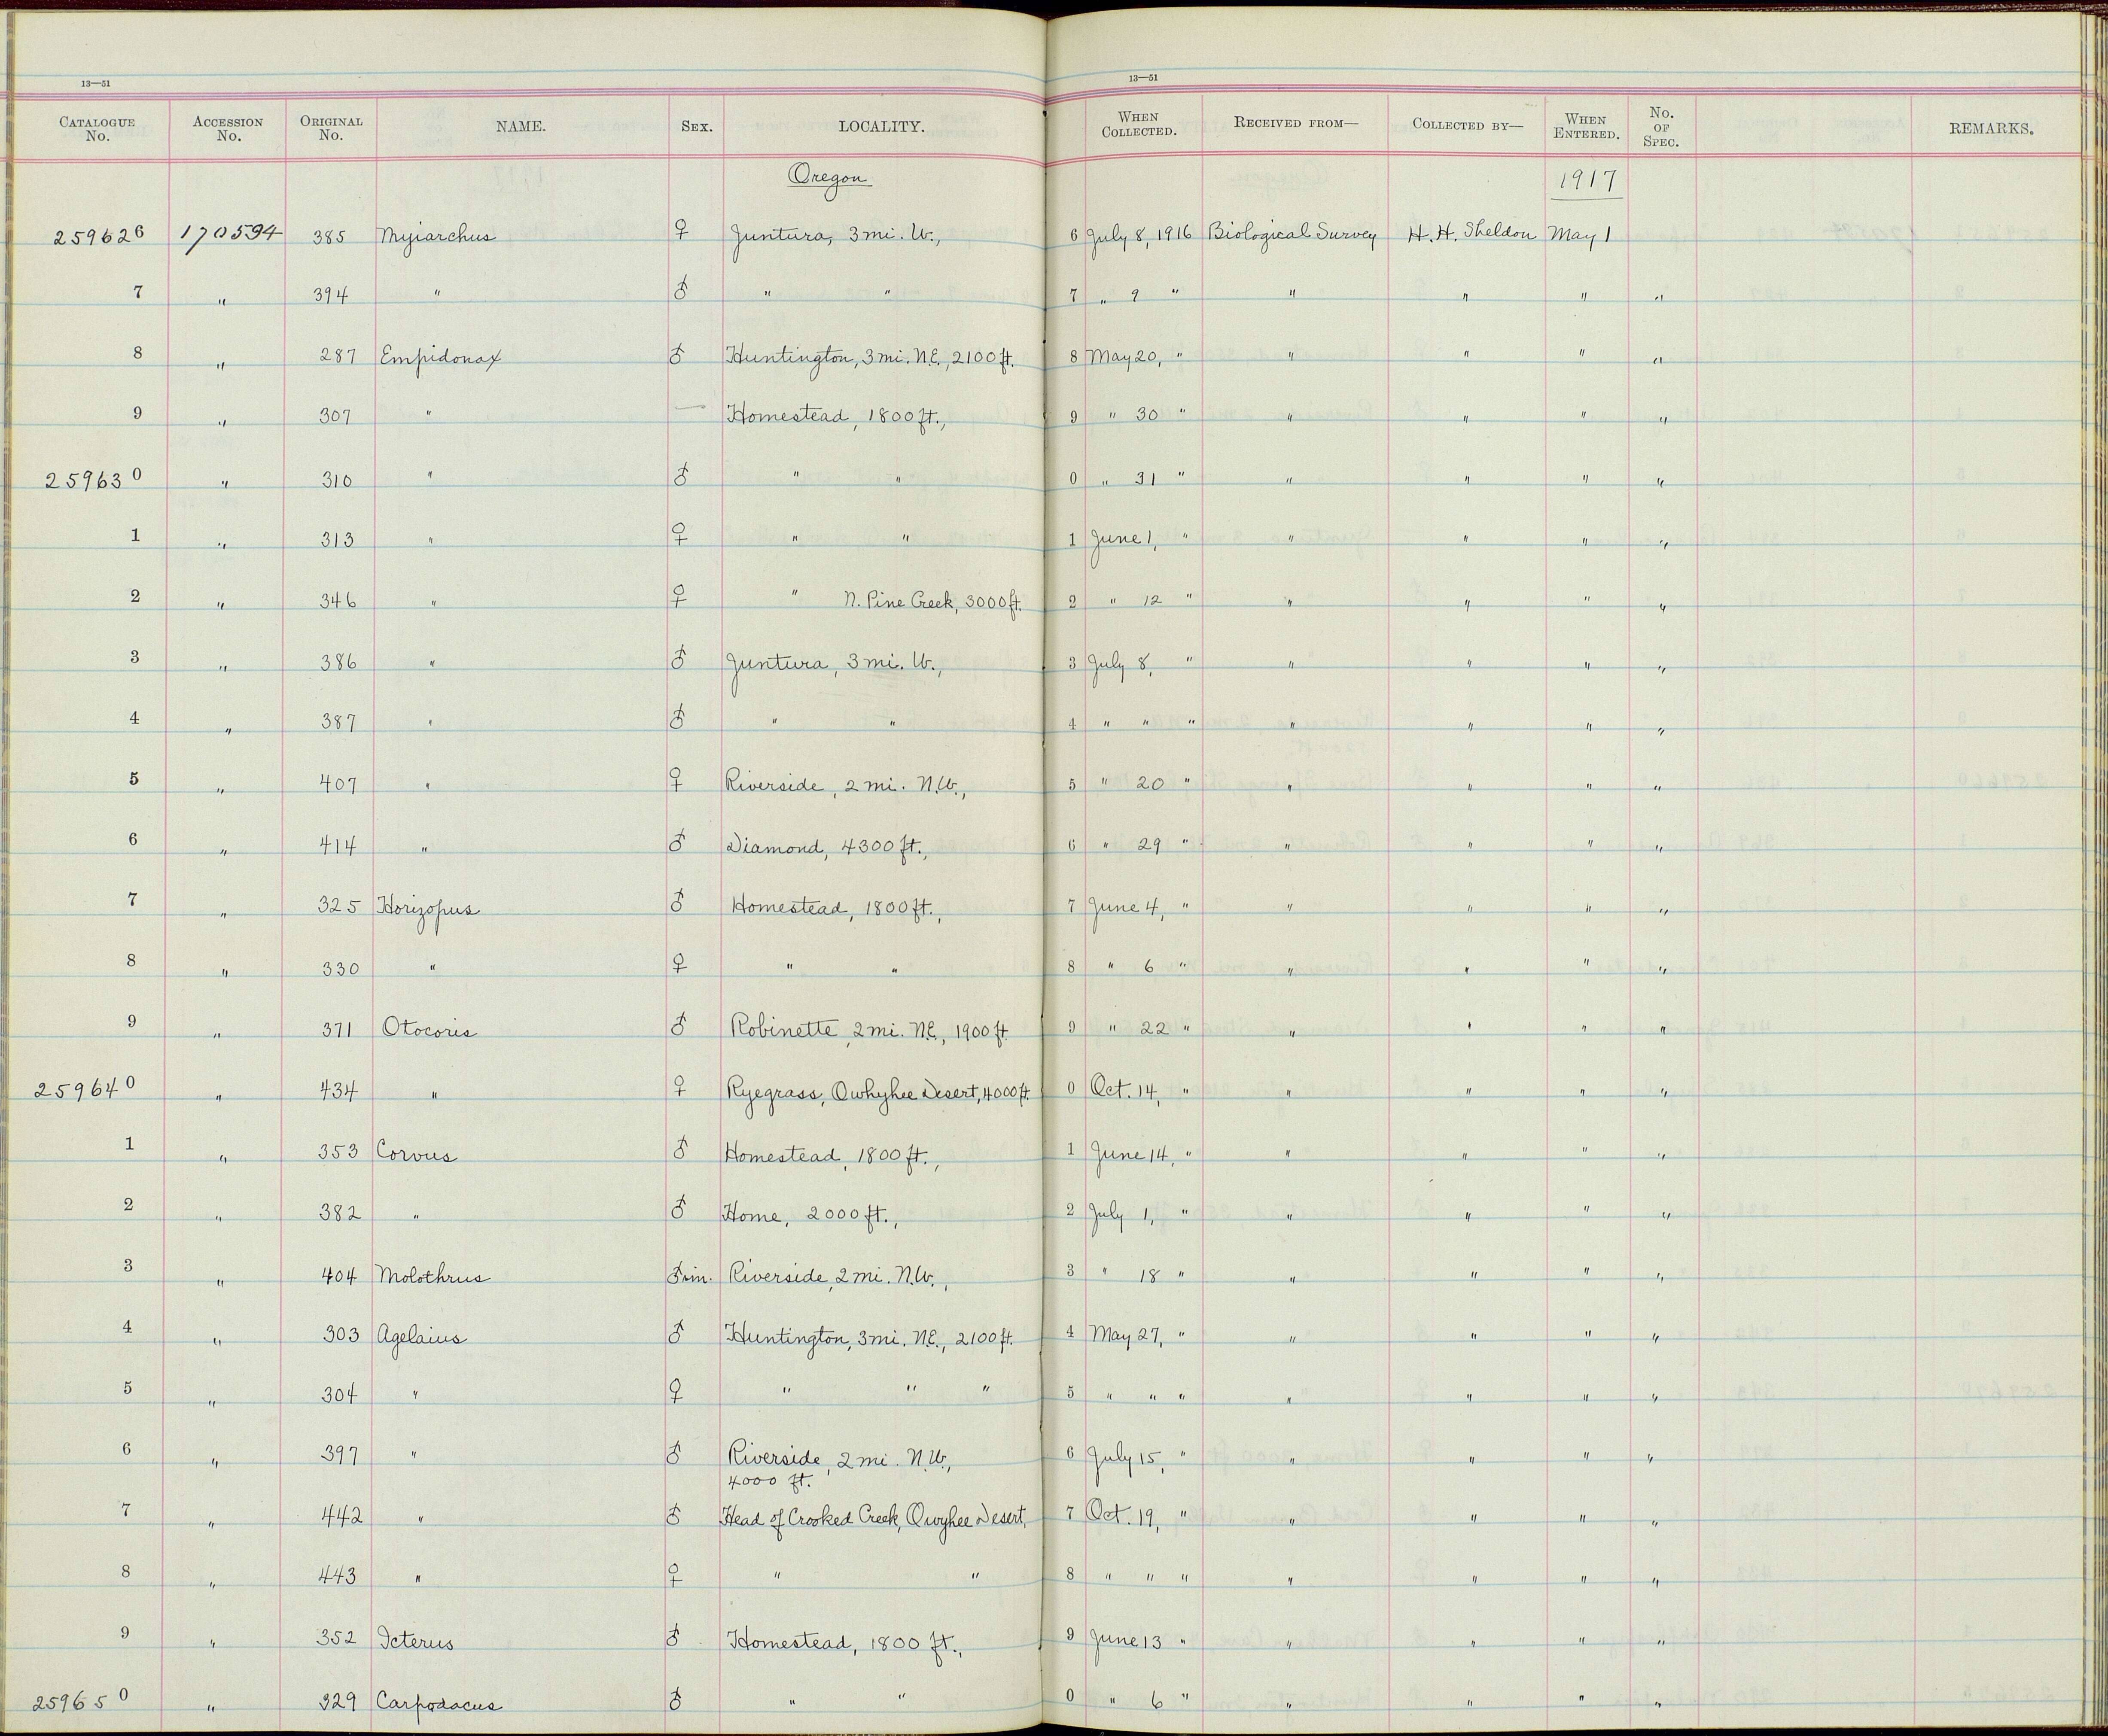 13—51 13—51
CATALOGUE No. ACCESSION No. ORIGINAL No. NAME. SEX. LOCALITY. WHEN COLLECTED. RECEIVED FROM— COLLECTED BY— WHEN ENTERED. No. OF SPEC. REMARKS.
Oregon 1917
259626 170594 385 Myiarchus ♀ Juntura, 3 mi. W., 6 July 8, 1916 Biological Survey H. H. Sheldon May 1
7 " 394 " ♂ " " 7 " 9 " " " " "
8 " 287 Empidonax ♂ Huntington, 3 mi. N.E., 2100 ft. 8 May 20, " " " " "
9 " 307 " — Homestead, 1800 ft., 9 " 30 " " " " "
259630 " 310 " ♂ " " 0 " 31 " " " " "
1 " 313 " ♀ " " 1 June 1, " " " " "
2 " 346 " ♀ " N. Pine Creek, 3000 ft. 2 " 12 " " " " "
3 " 386 " ♂ Juntura, 3 mi. W., 3 July 8, " " " " "
4 " 387 " ♂ " " 4 " " " " " " "
5 " 407 " ♀ Riverside, 2 mi. N.W., 5 " 20 " " " " "
6 " 414 " ♂ Diamond, 4300 ft., 6 " 29 " " " " "
7 " 325 Horizopus ♂ Homestead, 1800 ft., 7 June 4, " " " " "
8 " 330 " ♀ " " 8 " 6 " " " " "
9 " 371 Otocoris ♂ Robinette, 2 mi. N.E., 1900 ft. 9 " 22 " " " " "
259640 " 434 " ♀ Ryegrass, Owhyhee Desert, 4000 ft. 0 Oct. 14, " " " " "
1 " 353 Corvus ♂ Homestead, 1800 ft., 1 June 14, " " " " "
2 " 382 " ♂ Home, 2000 ft., 2 July 1, " " " " "
3 " 404 Molothrus ♂ im. Riverside, 2 mi. N.W., 3 " 18 " " " " "
4 " 303 Agelaius ♂ Huntington, 3 mi. N.E., 2100 ft. 4 May 27, " " " " "
5 " 304 " ♀ " " " 5 " " " " " " "
6 " 397 " ♂ Riverside, 2 mi. N.W., 6 July 15, " " " " "
4000 ft.
7 " 442 " ♂ Head of Crooked Creek, Owyhee Desert, 7 Oct. 19, " " " " "
8 " 443 " ♀ " " 8 " " " " " " "
9 " 352 Icterus ♂ Homestead, 1800 ft., 9 June 13 " " " " "
259650 " 329 Carpodacus ♂ " " 0 " 6 " " " " "